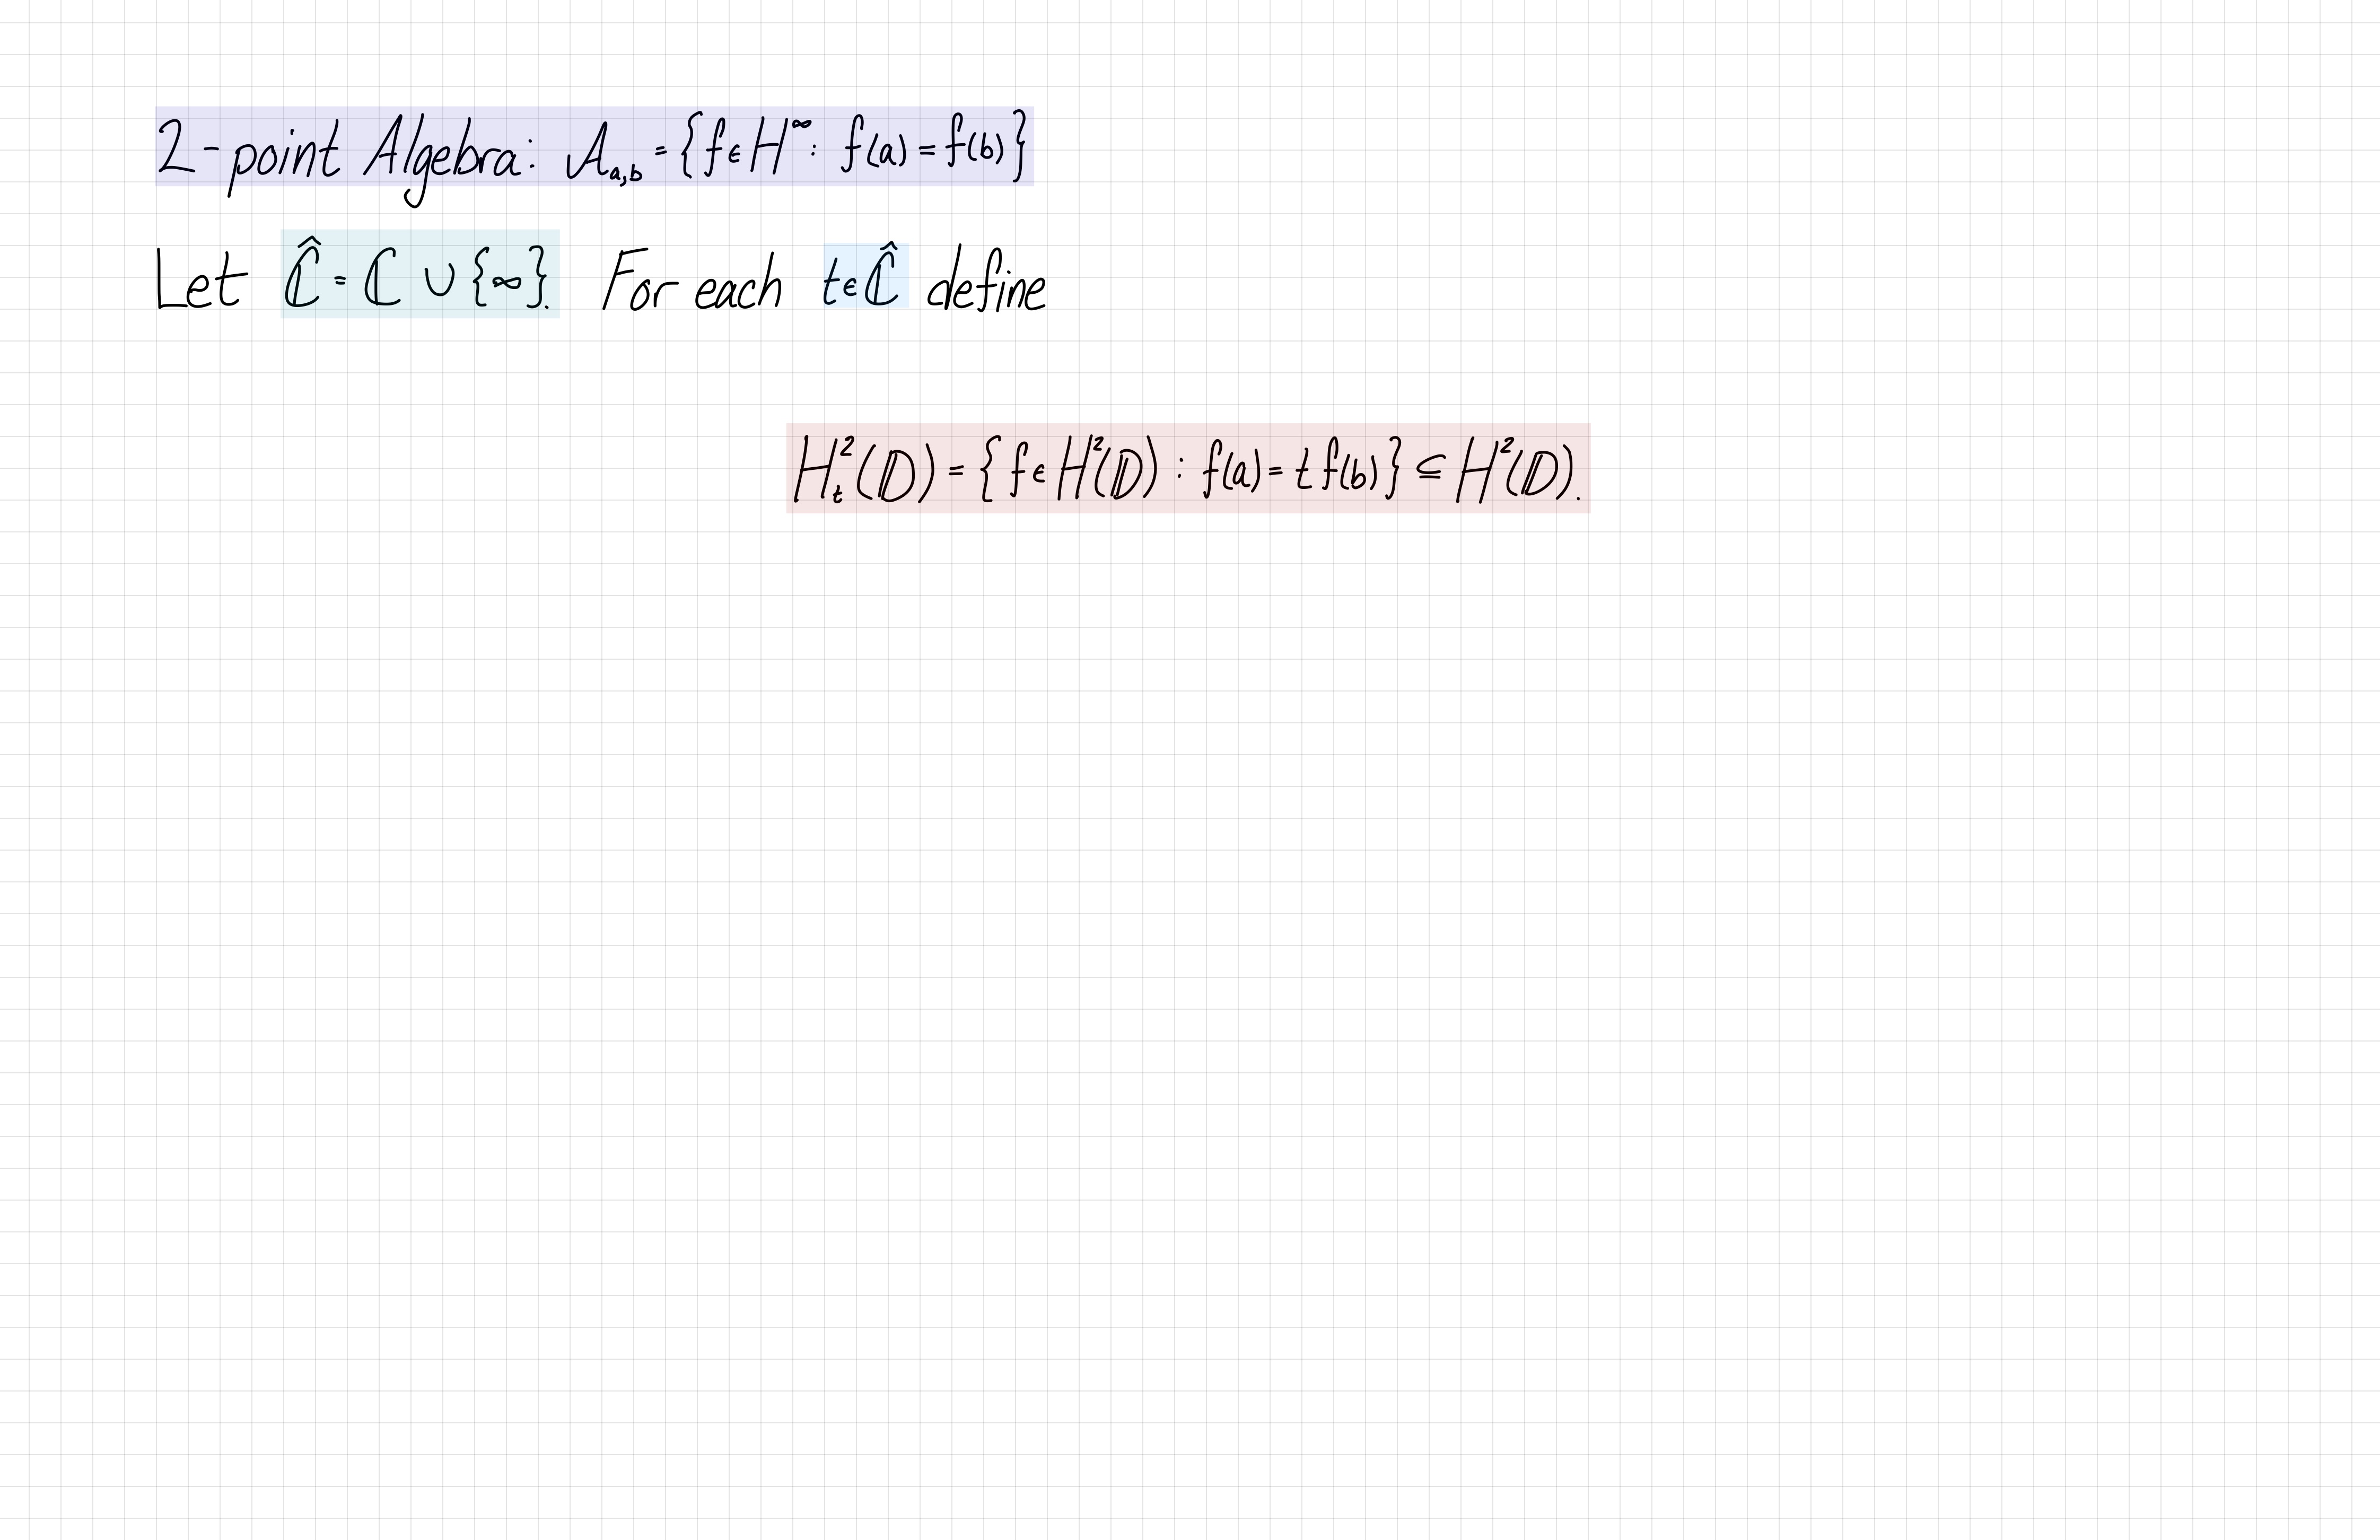 2-point Algebra: 𝒜_{a,b} = {f ∈ H^∞ : f(a) = f(b)}
Let Ĉ = ℂ ∪ {∞}. For each t ∈ Ĉ define
H²_t(𝔻) = {f ∈ H²(𝔻) : f(a) = t f(b)} ⊆ H²(𝔻).